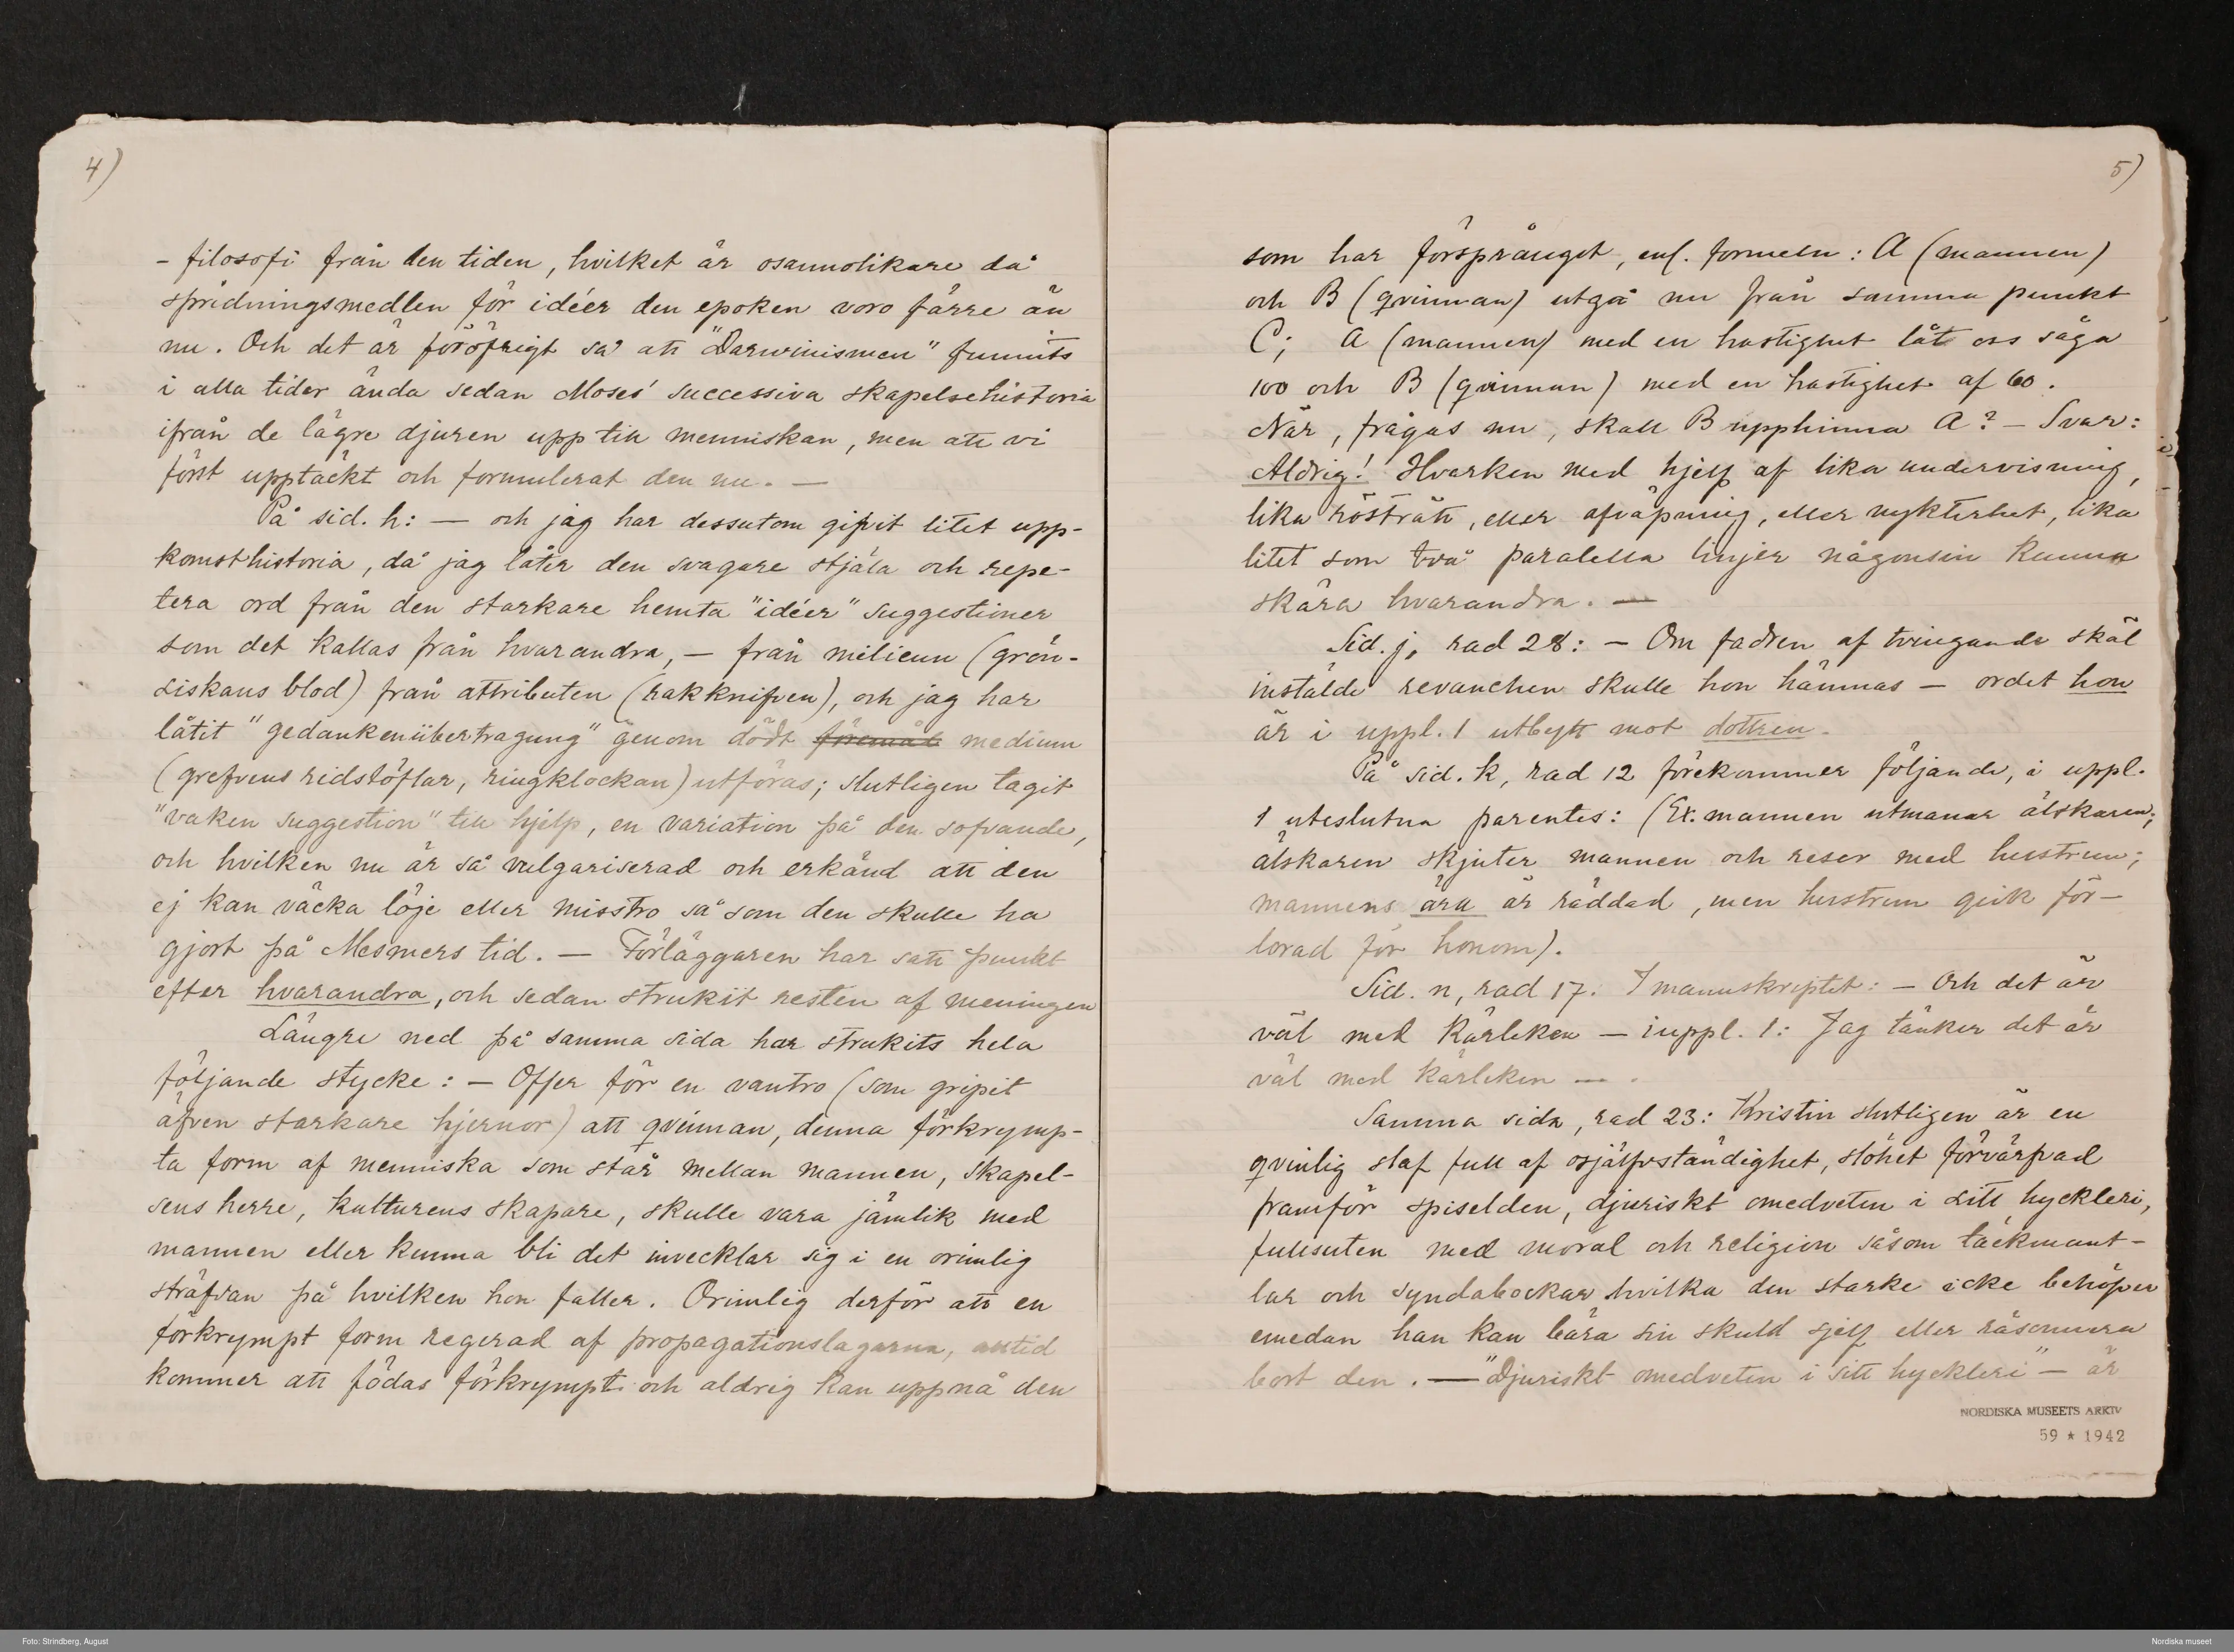 4)
- filosofi från den tiden, hvilket är osannolikare då
spridningsmedlen för idéer den epoken voro färre än
nu. Och det är föröfrigt så att "Darwinismen" funnits
i alla tider ända sedan Moses' successiva skapelsehistoria
ifrån de lägre djuren upp till menniskan, men att vi
först upptäckt och formulerat den nu. —
På sid. h: — och jag har dessutom gifvit litet upp-
komsthistoria, då jag låter den svagare stjäla och repe-
tera ord från den starkare hemta "idéer" suggestioner
som det kallas från hvarandra, — från milieun (grön-
siskans blod) från attributen (rakknifven), och jag har
låtit "gedankenübertragung" genom dödt föremål medium
(grefvens ridstöflar, ringklockan) utföras; slutligen tagit
"vaken suggestion" till hjelp, en variation på den sofvande,
och hvilken nu är så vulgariserad och erkänd att den
ej kan väcka löje eller misstro så som den skulle ha
gjort på Mesmers tid. — Förläggaren har satt punkt
efter hvarandra, och sedan strukit resten af meningen
Längre ned på samma sida har strukits hela
följande stycke: — Offer för en vantro (som gripit
äfven starkare hjernor) att qvinnan, denna förkrymp-
ta form af menniska som står mellan mannen, skapel-
sens herre, kulturens skapare, skulle vara jämlik med
mannen eller kunna bli det invecklar sig i en orimlig
sträfvan på hvilken hon faller. Orimlig derför att en
förkrympt form regerad af propagationslagarna, alltid
kommer att födas förkrympt och aldrig kan uppnå den
5)
som har försprånget, enl. formeln: A (mannen)
och B (qvinnan) utgå nu från samma punkt
C; A (mannen) med en hastighet låt oss säga
100 och B (qvinnan) med en hastighet af 60.
När, frågas nu, skall B upphinna A? — Svar:
Aldrig! Hvarken med hjelp af lika undervisning,
lika rösträtt, eller afväpning, eller nykterhet, lika
litet som två paralella linjer någonsin kunna
skära hvarandra. —
Sid. j, rad 28: — Om fadren af tvingande skäl
instälde revanchen skulle hon hämnas — ordet hon
är i uppl. 1 utbytt mot dottren.
På sid. k, rad 12 förekommer följande, i uppl.
1 uteslutna parentes: (Ex: mannen utmanar älskaren;
älskaren skjuter mannen och reser med hustrun;
mannens ära är räddad, men hustrun gick för-
lorad för honom).
Sid. n, rad 17. I manuskriptet: — Och det är
väl med kärleken — i uppl. 1: Jag tänker det är
väl med kärleken — .
Samma sida, rad 23: Kristin slutligen är en
qvinlig slaf full af osjälfständighet, slöhet förvärfvad
framför spiselden, djuriskt omedveten i sitt hyckleri,
fullsuten med moral och religion såsom täckmant-
lar och syndabockar hvilka den starke icke behöfver
emedan han kan bära sin skuld sjelf eller räsonnera
bort den. — "Djuriskt omedveten i sitt hyckleri" — är
NORDISKA MUSEETS ARKIV
59 * 1942
Foto: Strindberg, August
Nordiska museet